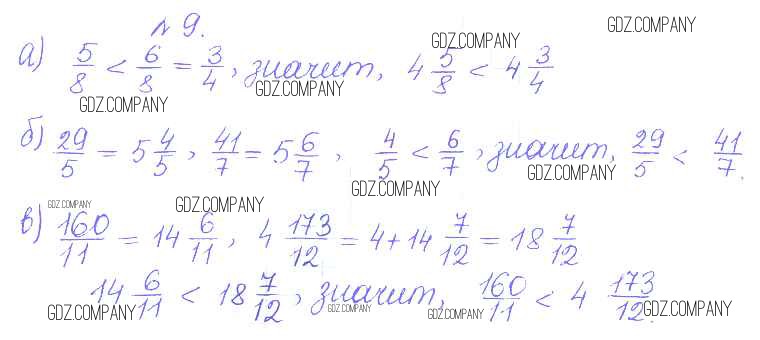 № 9.
GDZ.COMPANY
а) 5/8 < 6/8 = 3/4, значит, 4 5/8 < 4 3/4
GDZ.COMPANY
GDZ.COMPANY
GDZ.COMPANY
б) 29/5 = 5 4/5, 41/7 = 5 6/7, 4/5 < 6/7, значит, 29/5 < 41/7.
GDZ.COMPANY
GDZ.COMPANY
GDZ.COMPANY
GDZ.COMPANY
в) 160/11 = 14 6/11, 4 173/12 = 4 + 14 7/12 = 18 7/12
14 6/11 < 18 7/12, значит, 160/11 < 4 173/12.
GDZ.COMPANY
GDZ.COMPANY
GDZ.COMPANY
GDZ.COMPANY